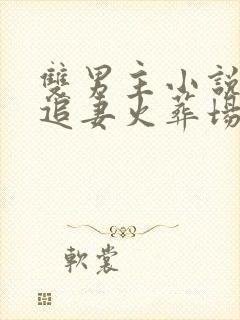 雙男主小說
追妻火葬場
軟裳